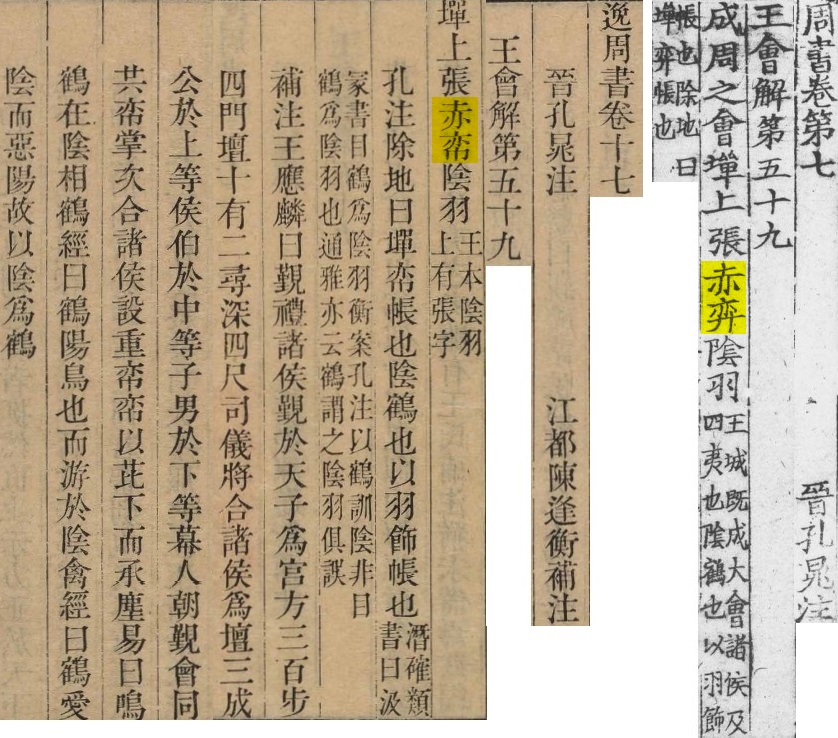 周書卷第七　晉孔晁注
王會解第五十九
成周之會墠上張赤弈隂羽
王城既成大會諸侯及
四夷也隂鶴也以羽飾
帳也除地曰
墠弈帳也
逸周書卷十七
晉孔晁注　江都陳逢衡補注
王會解第五十九
墠上張赤帟陰羽
王本陰羽
上有張字
孔注除地曰墠帟帳也陰鶴也以羽飾帳也
潛確類
書曰汲
冢書曰鶴爲陰羽衡案孔注以鶴訓陰非目
鶴爲陰羽也通雅亦云鶴謂之陰羽俱誤
補注王應麟曰覲禮諸侯覲於天子爲宮方三百步
四門壇十有二尋深四尺司儀將合諸侯爲壇三成
公於上等侯伯於中等子男於下等幕人朝覲會同
共帟掌次合諸侯設重帟帟以庇下而承塵易曰鳴
鶴在陰相鶴經曰鶴陽鳥也而游於陰禽經曰鶴愛
陰而惡陽故以陰爲鶴